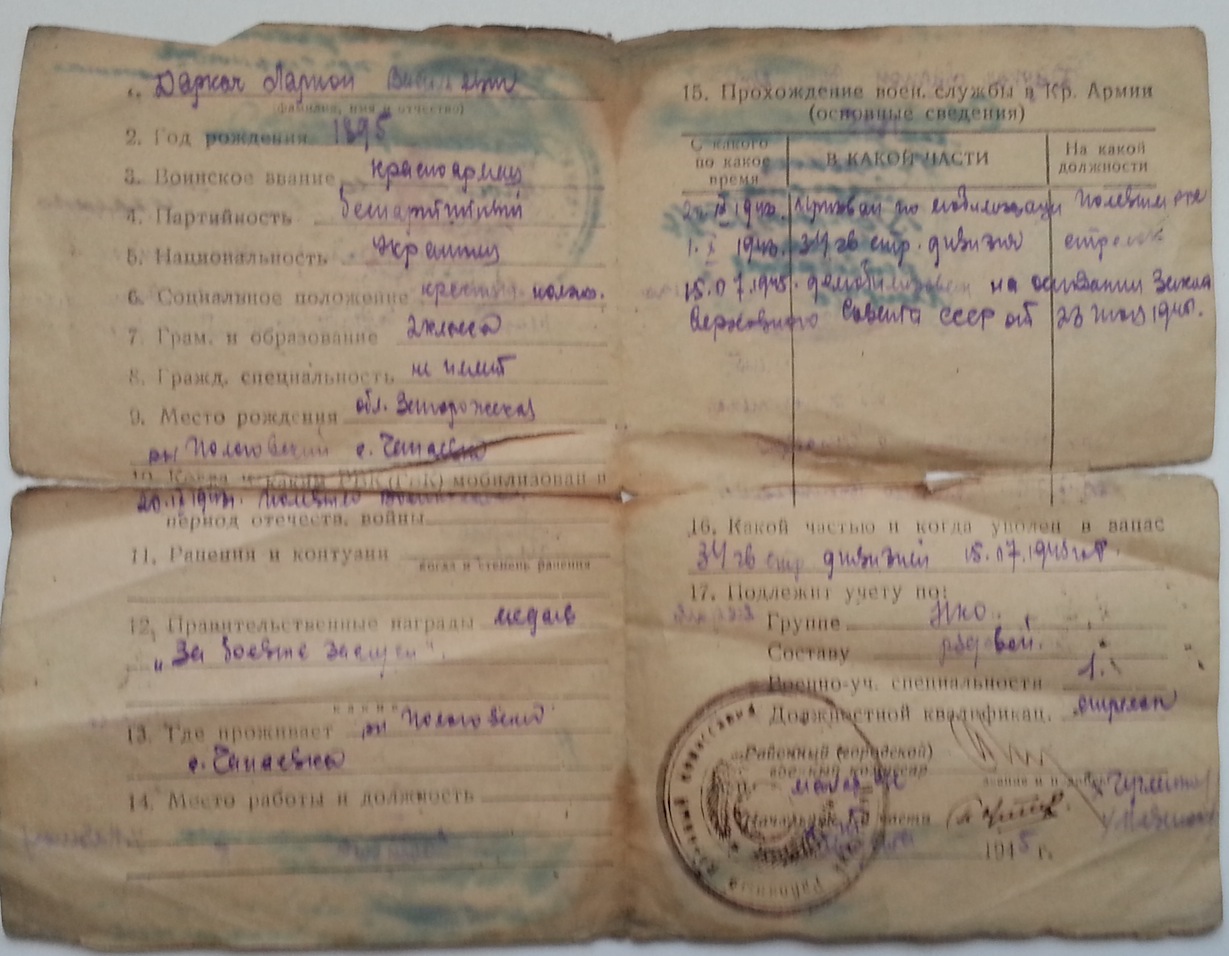 Деркач Ларион
(фамилия, имя и отчество)
2. Год рождения 1895
3. Воинское звание красноармеец
4. Партийность беспартийный
5. Национальность Украинец
6. Социальное положение
7. Грам. и образование 2 класса
8. Гражд. специальность не имеет
9. Место рождения обл. Запорожская
рн Пологовский с. Чапаевка
10. Когда и каким РВК (ГВК) мобилизован в
период отечеств. войны
11. Ранения и контузии
когда и степень ранения
12. Правительственные награды медаль
„За боевые заслуги“.
каких
13. Где проживает рн Пологовский
с. Чапаевка
14. Место работы и должность
15. Прохождение воен. службы в Кр. Армии
(основные сведения)
С какого по какое время
В КАКОЙ ЧАСТИ
На какой должности
1943. призван по мобилизации
1943. 34 гв стр. дивизия стрелок
15.07.1945. демобилизован на основании Закона
Верховного Совета СССР от 23 июня 1945.
16. Какой частью и когда уволен в запас
34 гв стр. дивизией 15.07.1945
17. Подлежит учету по:
Группе НКО.
Составу рядовой.
Военно-уч. специальности 1.
Должностной квалификац. стрелок
Районный (городской)
военный комиссар
майор
Начальник части
1945 г.